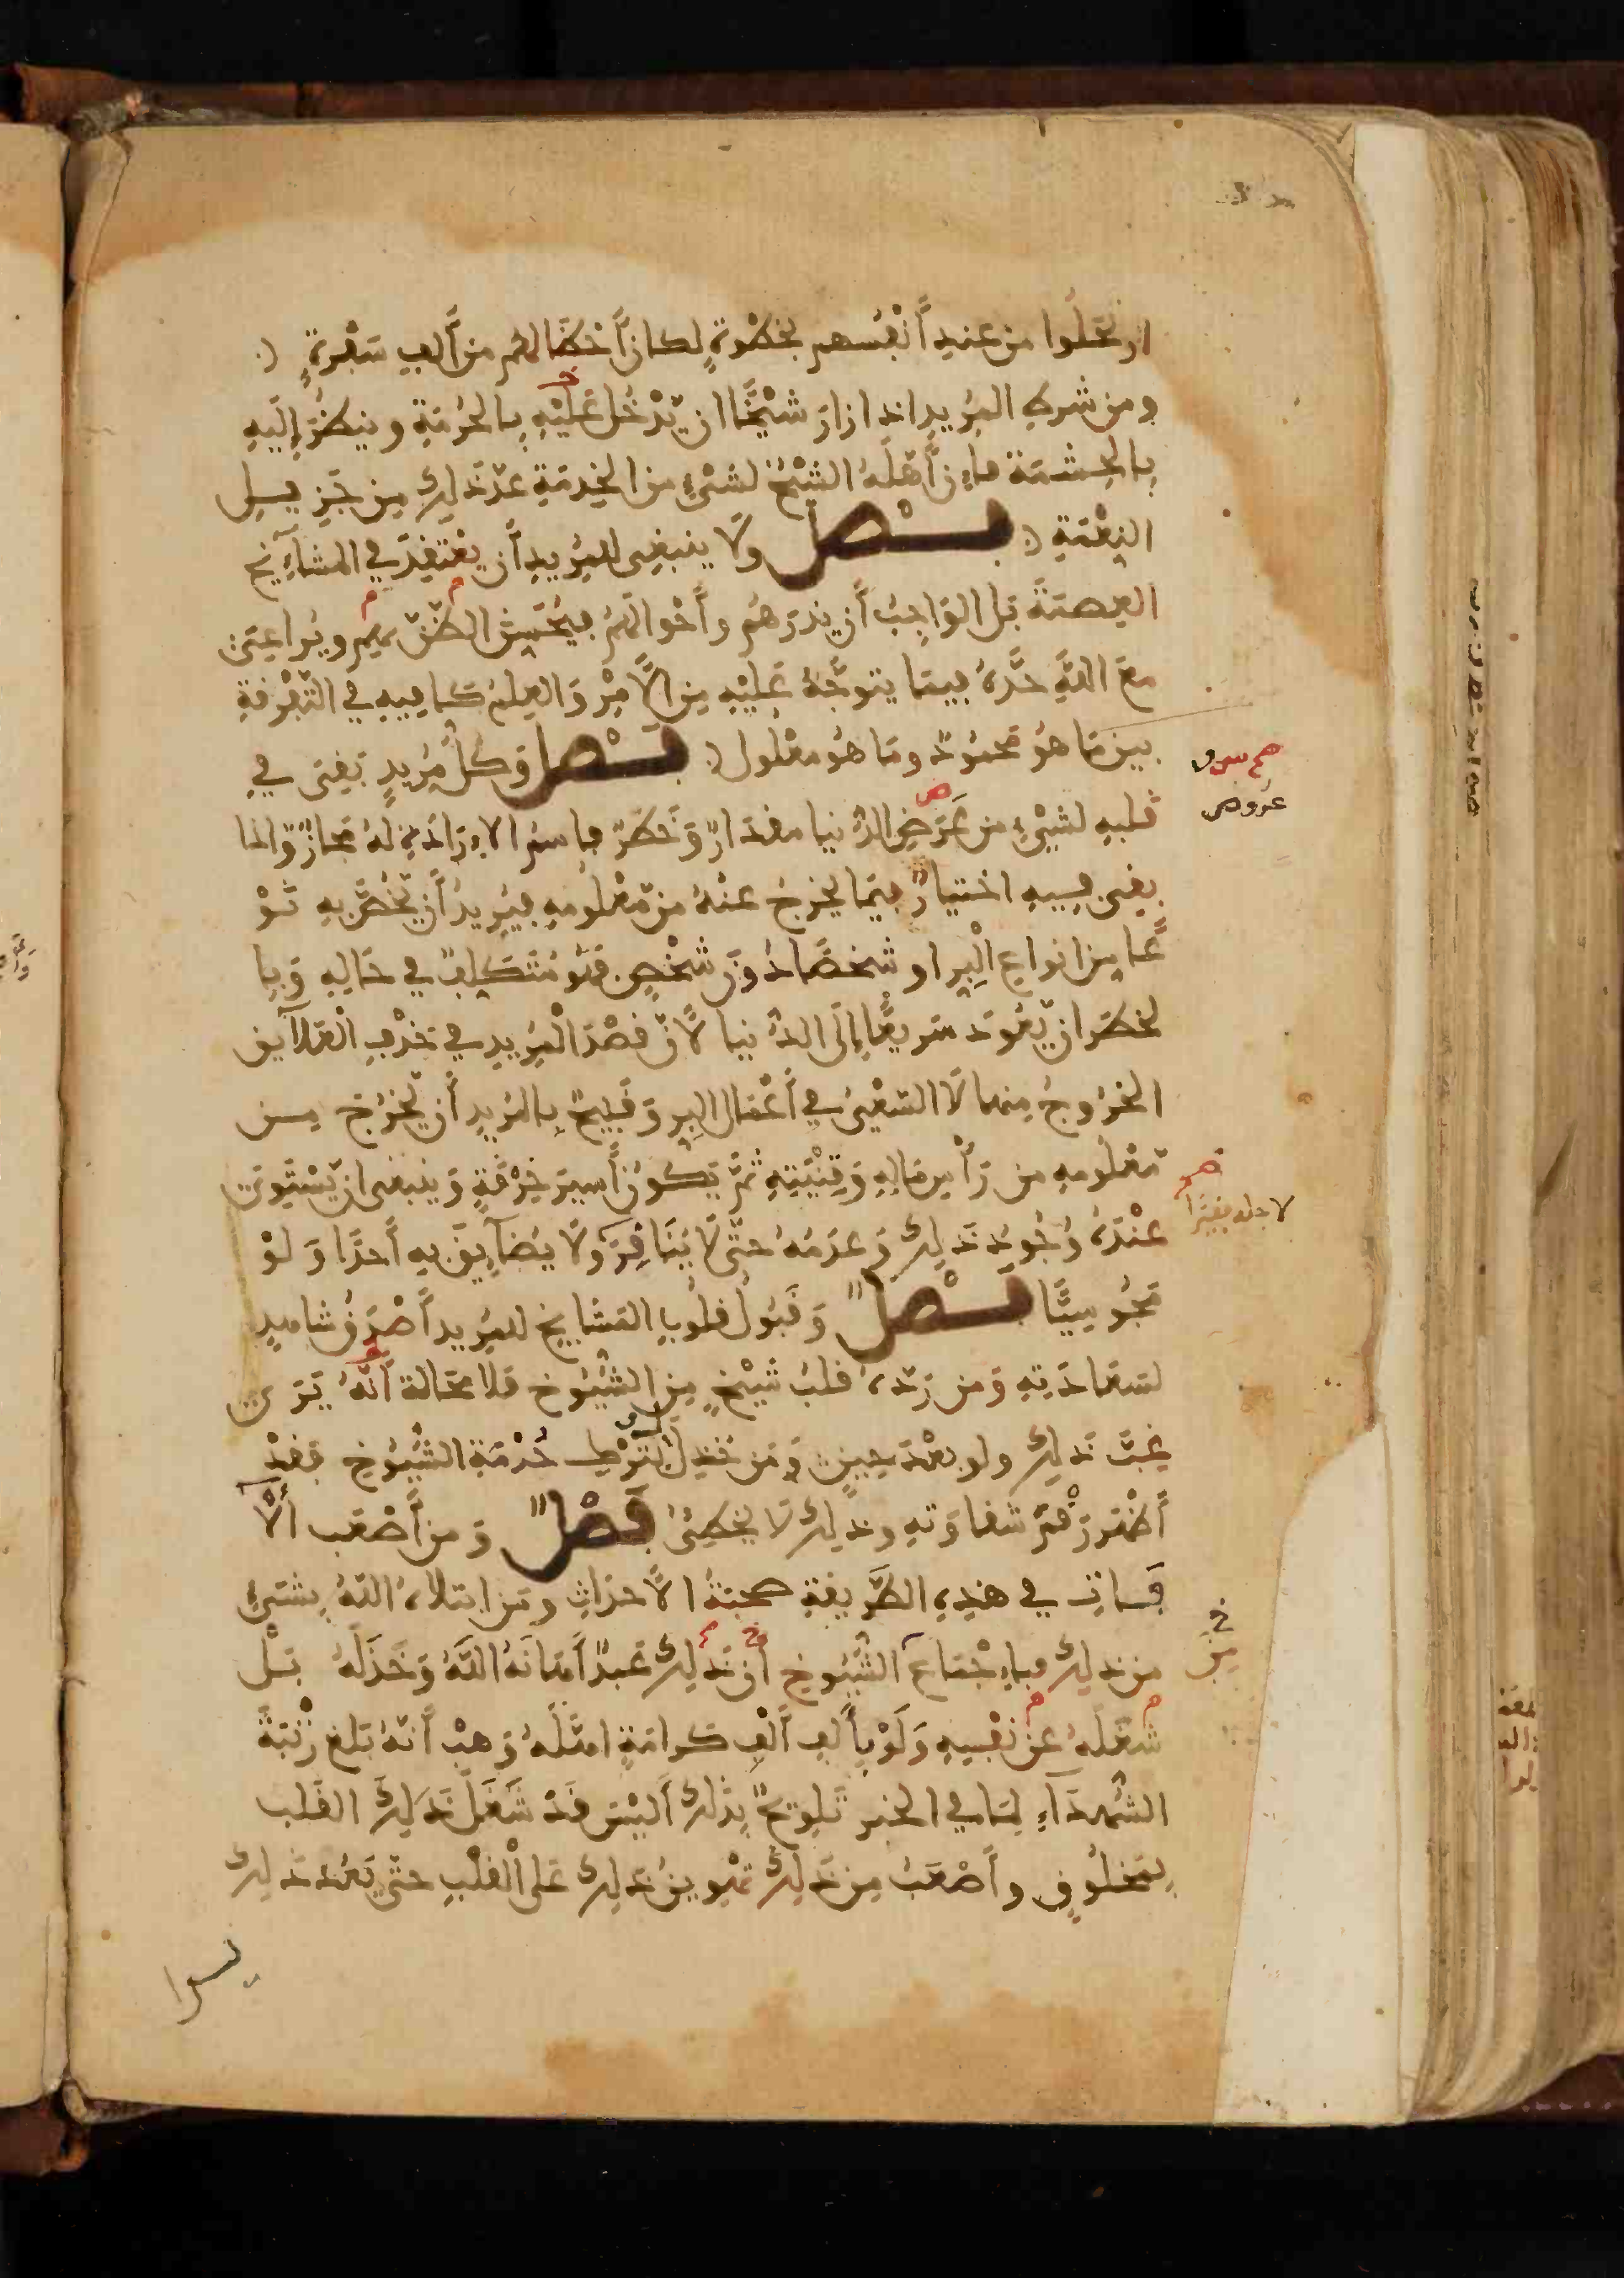 ارتحلوا من عند أنفسهم بخطوةٍ لكان أحظا لهم من ألف سفرةٍ
ومن شرط المريد اذا زار شيخًا ان يدخل عليه بالحرمة وينظر إليه
بالحشمة فإن أهله الشيخ لشيءٍ من الخدمة عدّ ذلك من جزيل
النعمة فصل ولا ينبغي للمريد أن يعتقد في المشائخ
العصمة بل الواجب أن يذرهم وأحوالهم فيحسن الظن بهم ويراعي
مع الله حدّه فيما يتوجّه عليه من الأمر والعلم كافيه في التفرقة
بين ما هو محمودٌ وما هو معلول فصل وكل مريدٍ بقي في
قلبه لشيءٍ من عرض الدنيا مقدارٌ وخطرٌ فاسم الإرادة له مجازٌ واذا
بقي في قلبه اختيارٌ فيما يخرج عنه من معلومه فيريد أن يخص به نو
عًا من انواع البر او شخصًا دون شخصٍ فهو متكلفٌ في حاله وبا
لخطر ان يعود سريعًا إلى الدنيا لأن قصد المريد في حذف العلائق
الخروج منها لا السعي في أعمال البر وقبيحٌ بالمريد أن يخرج من
معلومه من رأس ماله وقنيته ثم يكون أسير حرفةٍ وينبغي ان يستوي
عنده وجود ذلك وعدمه حتى لا ينافر ولا يضايق به أحدًا ولو
مجوسيًّا فصلٌ وقبول قلوب المشايخ للمريد أصدق شاهدٍ
لسعادته ومن ردّه قلب شيخٍ من الشيوخ فلا محالة أنه يرى
غبّ ذلك ولو بعد حينٍ ومن خذل بترك حرمة الشيوخ فقد
أظهر رقم شقاوته وذلك لا يخطئ فصلٌ ومن أصعب الآ
فات في هذه الطريقة صحبة الأحداث ومن ابتلاه الله بشيءٍ
من ذلك فبإجماع الشيوخ أن ذلك عبدٌ أهانه الله وخذله بل
شغله عن نفسه ولو بألف ألف كرامةٍ اهّله وهب أنه بلغ رتبة
الشهداء لما في الخبر تلويحٌ بذلك أليس قد شغل ذلك القلب
بمخلوقٍ وأصعب من ذلك تهوين ذلك على القلب حتى يعد ذلك
يسيرا
صح
عروض
لاجله فقيرًا
خ
من